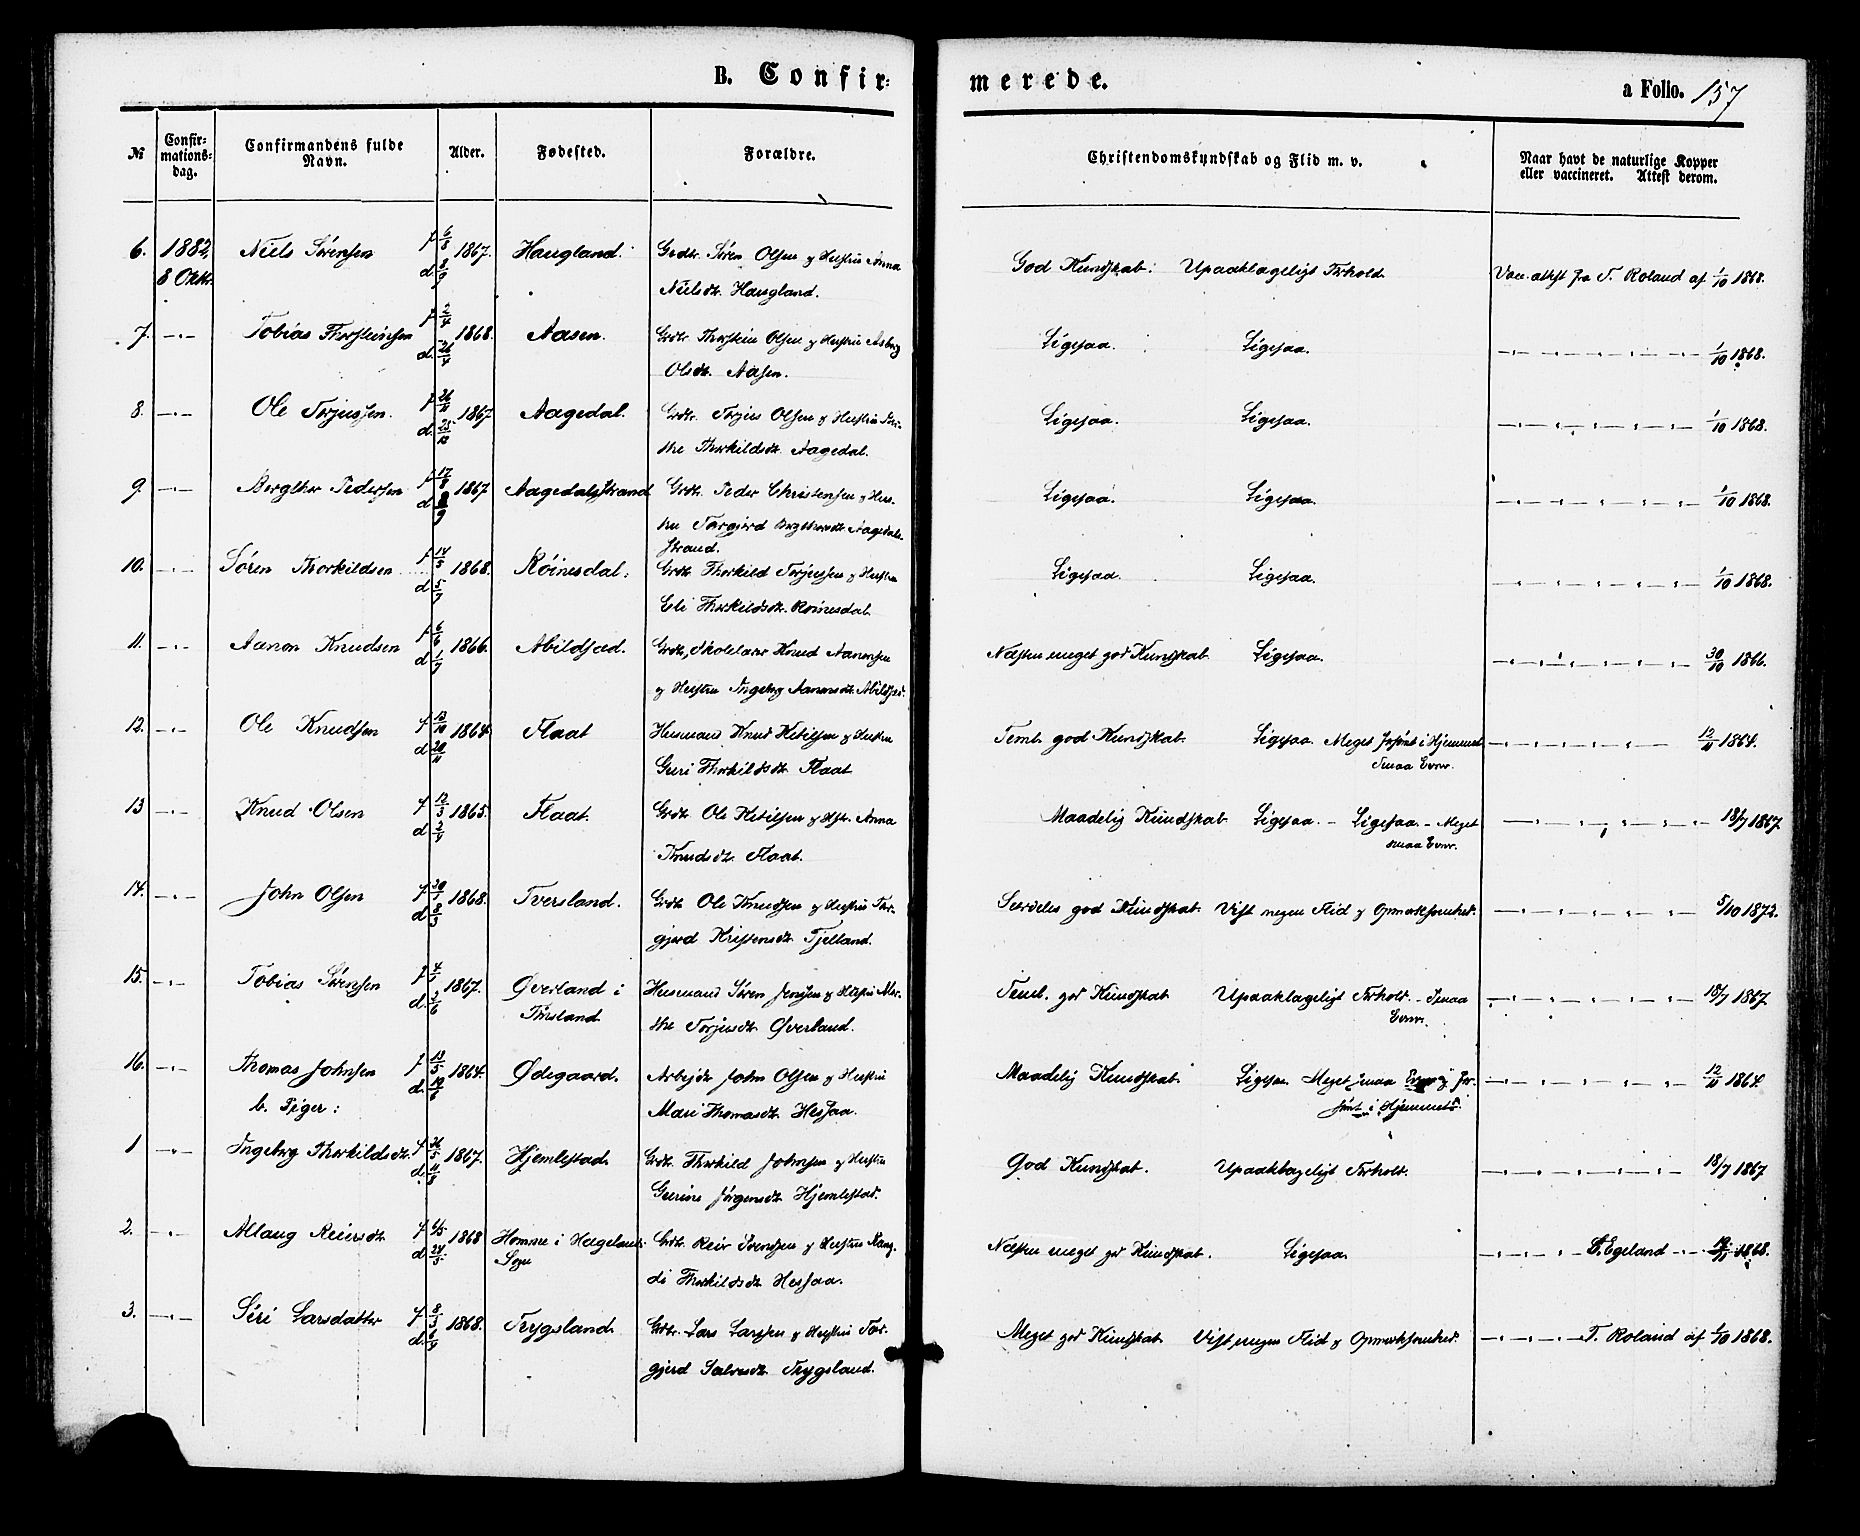 B. Confir-
merede.
a Folio. 157
№
Confir-
mations-
dag.
Confirmandens fulde
Navn.
Alder.
Fødested.
Forældre.
Christendomskundskab og Flid m. v.
Naar havt de naturlige Kopper
eller vaccineret. Attest derom.
6. 1882, 8 Oktr. Niels Sørensen f 6/8 d. 8/9 1867. Haugland. Grdr. Søren Olsen og Hustru Anna
Nielsdt. Haugland.
God Kundskab. Upaaklageligt Forhold. Vac. attest fra T. Roland af 1/10 1868.
7. -"- Tobias Thorsteinsen f 2/4 d. 26/4 1868. Aasen. Grdr. Thorstein Olsen og Hustru Asborg
Olsdt. Aasen.
Ligesaa. Ligesaa. 1/10 1868.
8. -"- Ole Torjussen. f 26/11 d. 25/12 1867 Aagedal. Grdr. Torjus Olsen og Hustru
Thorkildsdt. Aagedal.
Ligesaa. Ligesaa. 1/10 1868.
9 -"- Bergthor Pedersen f 17/8 d 8/9 1867 Aagedalsstrand Grdr. Peder Christensen og Hus-
tru Torgjerd Bergthorsdt. Aagedals-
strand.
Ligesaa. Ligesaa. 1/10 1868.
10. -"- Søren Thorkildsen f 14/5 d 5/7 1868. Røinesdal. Grdr. Thorkild Torjussen og Hustru
Eli Thorkildsdt. Roinesdal.
Ligesaa. Ligesaa. 1/10 1868.
11. -"- Aanon Knudsen f 6/6 d 1/7 1866. Abildsad. Grdr, Skolelærer Knud Aanonsen
og Hustru Ingeborg Aanonsdt. Abildsad.
Næsten meget god Kundskab. Ligesaa. 30/10 1866.
12. -"- Ole Knudsen f 12/10 d 20/11 1864. Flaat Husmand Knud Ketilsen og Hustru
Guri Thorkildsdt. Flaat
Teml. god Kundskab. Ligesaa. Meget forsømt i Hjemmet
Smaa Evner. 12/11 1864.
13 -"- Knud Olsen f 12/3 d 2/4 1865. Flaat. Grdr. Ole Ketilsen og Hstr. Anna
Knudsdt. Flaat.
Maadelig Kundskab. Ligesaa. - Ligesaa. - Meget
smaa Evner. 18/7 1867
14. -"- John Olsen f 30/1 d 8/3 1868. Tversland. Grdr. Ole Knudsen og Hustru Tor-
gjerd Kristensdt. Fjelland.
Særdeles god Kundskab. Vist megen Flid og Opmærksomhed. 5/10 1872.
15. -"- Tobias Sørensen d. 2/6 1867. Øverland i
Husmand Søren Jenssen og Hustru Mar-
the Torjusdt. Øverland.
Teml. god Kundskab Upaaklageligt Forhold. - Smaa
Evner. 18/7 1867.
16. -"- Thomas Johnsen f 13/5 d. 19/6 1864. Ødegaard. Arbejdr John Olsen og Hustru
Mari Thomasdt. Hessaa.
Maadelig Kundskab. Ligesaa. Meget smaa Evner og for-
sømt i Hjemmet. 12/11 1864.
b. Piger:
1 -"- Ingeborg Thorkildsdt. f 26/5 1867. Hjemlestad. Grdr. Thorkild Johnsen og Hustru
Gurine Jørgensdt. Hjemlestad.
God Kundskab. Upaaklageligt Forhold. 18/7 1867
2. -"- Allaug Reiersdt. f 6/5 d 24/5 1868 Homme i Hægelands
Sogn
Grdr. Reier Svendsen og Hustru Rang-
di Thorkildsdt Hessaa.
Næsten meget god Kundskab. Ligesaa. Egeland 1868.
3. -"- Siri Larsdatter f 8/3 1868. Trygsland. Grdr. Lars Larssen og Hustru Tor-
gjerd Salvesdt. Trygsland.
Meget god Kundskab. Vist megen Flid og Opmærksomhed. T. Roland af 1/10 1868.